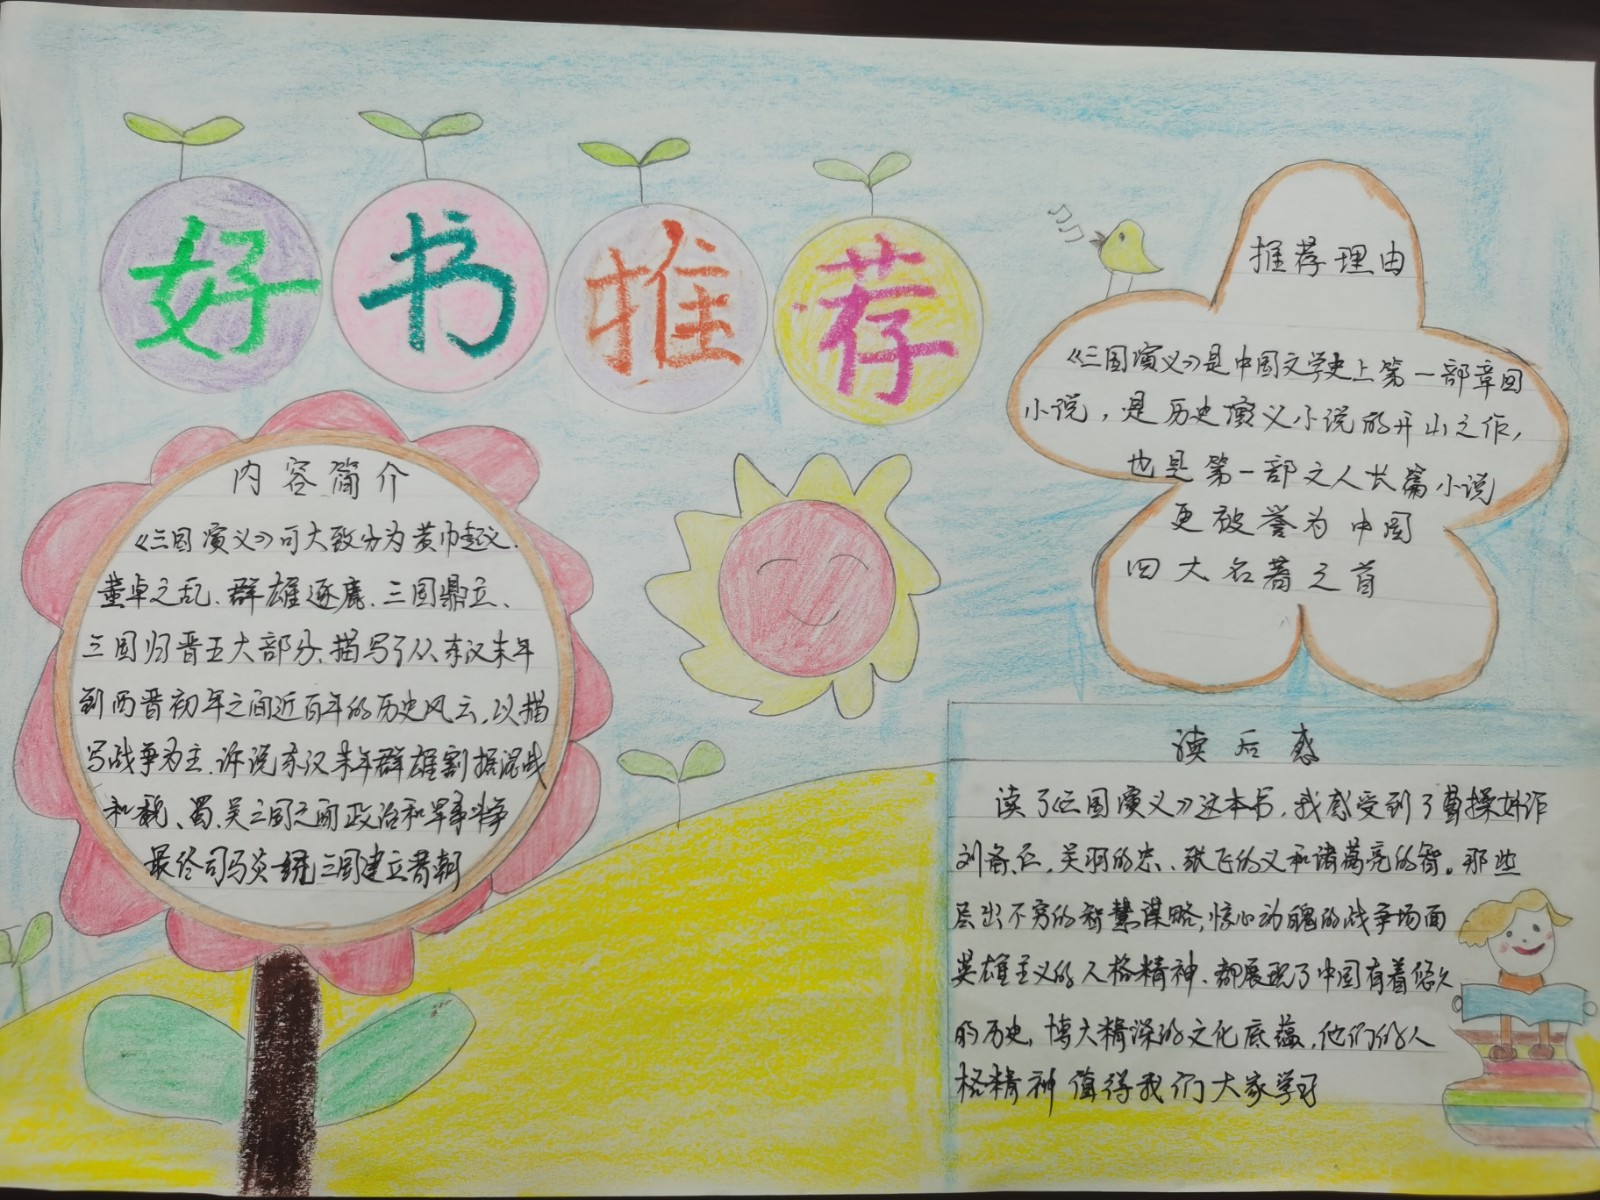 好书推荐
内容简介
《三国演义》可大致分为黄巾起义、
董卓之乱、群雄逐鹿、三国鼎立、
三国归晋五大部分、描写了从东汉末年
到西晋初年之间近百年的历史风云,以描
写战争为主、诉说东汉末年群雄割据混战
和魏、蜀、吴三国之间政治和军事斗争
最终司马炎一统三国建立晋朝
推荐理由
《三国演义》是中国文学史上第一部章回
小说,是历史演义小说的开山之作,
也是第一部文人长篇小说
更被誉为中国
四大名著之首
读后感
读了《三国演义》这本书,我感受到了曹操奸诈
刘备仁、关羽的忠、张飞的义和诸葛亮的智。那些
层出不穷的智慧谋略,惊心动魄的战争场面
英雄主义的人格精神、都展现了中国有着悠久
的历史,博大精深的文化底蕴,他们的人
格精神值得我们大家学习